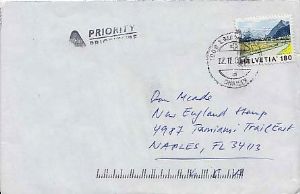 PRIORITY
PRIORITAIRE
HELVETIA 180
Don Meade
New England Stamp
4987 Tamiami Trail East
NAPLES, FL 34113